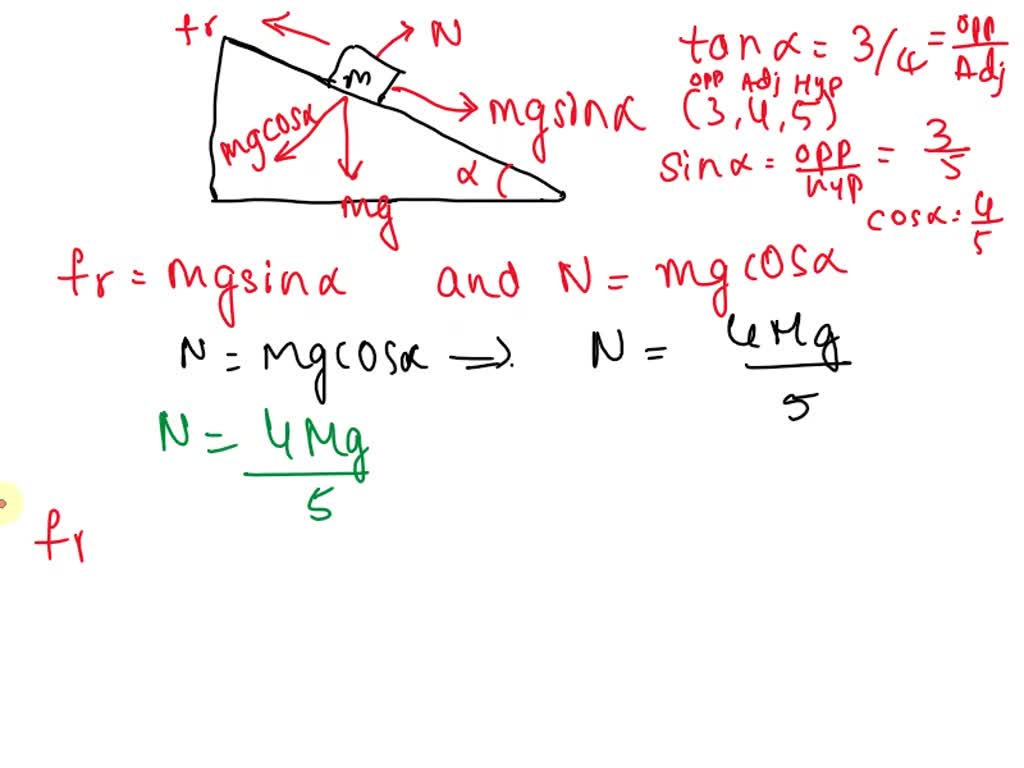 fr
N
m
mg cosα
mg sinα
mg
α
tanα = 3/4 = Opp/Adj
Opp Adj Hyp
(3, 4, 5)
sinα = opp/hyp = 3/5
cosα = 4/5
fr = mg sinα and N = mg cosα
N = Mg cosα → N = 4Mg/5
N = 4Mg/5
fr